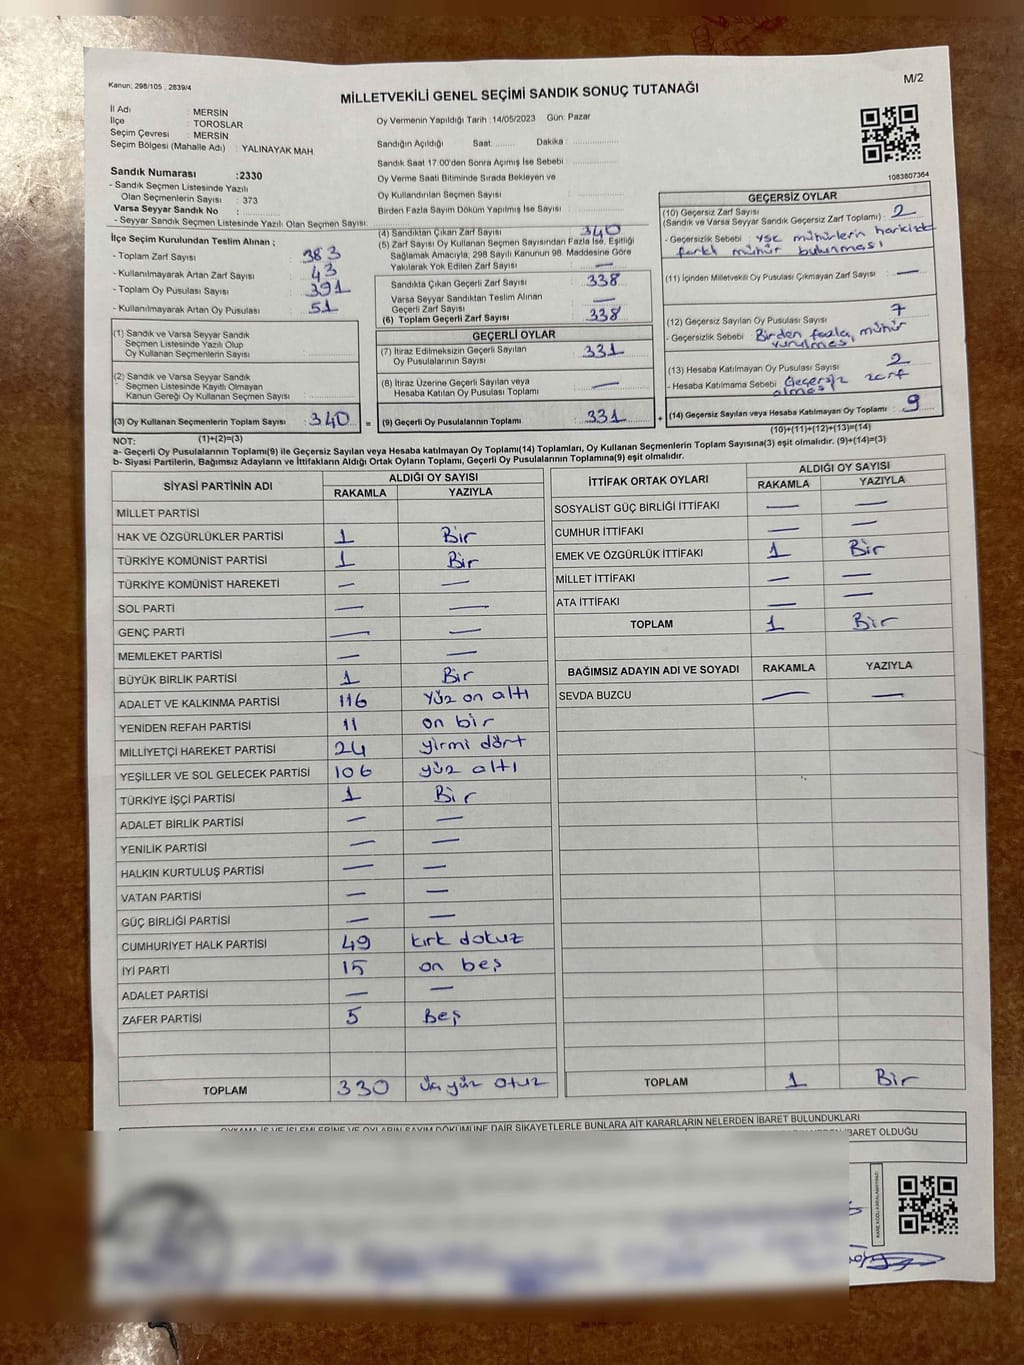 Kanun; 298/105 , 2839/4
M/2
MİLLETVEKİLİ GENEL SEÇİMİ SANDIK SONUÇ TUTANAĞI
İl Adı : MERSİN
İlçe : TOROSLAR
Seçim Çevresi : MERSİN
Seçim Bölgesi (Mahalle Adı) : YALINAYAK MAH.
Sandık Numarası :2330
- Sandık Seçmen Listesinde Yazılı
Olan Seçmenlerin Sayısı : 373
Varsa Seyyar Sandık No :
- Seyyar Sandık Seçmen Listesinde Yazılı Olan Seçmen Sayısı:
Oy Vermenin Yapıldığı Tarih :14/05/2023 Gün: Pazar
Sandığın Açıldığı Saat: Dakika :
Sandık Saat 17:00'den Sonra Açımış İse Sebebi :
Oy Verme Saati Bitiminde Sırada Bekleyen ve
Oy Kullandırılan Seçmen Sayısı :
Birden Fazla Sayım Döküm Yapılmış İse Sayısı :
1083807364
İlçe Seçim Kurulundan Teslim Alınan ;
- Toplam Zarf Sayısı : 383
- Kullanılmayarak Artan Zarf Sayısı : 43
- Toplam Oy Pusulası Sayısı : 391
- Kullanılmayarak Artan Oy Pusulası : 51
(1) Sandık ve Varsa Seyyar Sandık
Seçmen Listesinde Yazılı Olup
Oy Kullanan Seçmenlerin Sayısı :
(2) Sandık ve Varsa Seyyar Sandık
Seçmen Listesinde Kayıtlı Olmayan
Kanun Gereği Oy Kullanan Seçmen Sayısı :
(3) Oy Kullanan Seçmenlerin Toplam Sayısı : 340 =
(1)+(2)=(3)
(4) Sandıktan Çıkan Zarf Sayısı : 340
(5) Zarf Sayısı Oy Kullanan Seçmen Sayısından Fazla İse, Eşitliği
Sağlamak Amacıyla; 298 Sayılı Kanunun 98. Maddesine Göre
Yakılarak Yok Edilen Zarf Sayısı : —
Sandıkta Çıkan Geçerli Zarf Sayısı : 338
Varsa Seyyar Sandıktan Teslim Alınan
Geçerli Zarf Sayısı : —
(6) Toplam Geçerli Zarf Sayısı : 338
GEÇERLİ OYLAR
(7) İtiraz Edilmeksizin Geçerli Sayılan
Oy Pusulalarının Sayısı : 331
(8) İtiraz Üzerine Geçerli Sayılan veya
Hesaba Katılan Oy Pusulası Toplamı : —
(9) Geçerli Oy Pusulalarının Toplamı : 331 +
GEÇERSİZ OYLAR
(10) Geçersiz Zarf Sayısı
(Sandık ve Varsa Seyyar Sandık Geçersiz Zarf Toplamı) : 2
- Geçersizlik Sebebi : YSK mühürlerin
farklı mühür bulunması
(11) İçinden Milletvekili Oy Pusulası Çıkmayan Zarf Sayısı : —
(12) Geçersiz Sayılan Oy Pusulası Sayısı : 7
- Geçersizlik Sebebi : Birden fazla mühür
vurulması
(13) Hesaba Katılmayan Oy Pusulası Sayısı : 2
- Hesaba Katılmama Sebebi : Geçersiz zarf
olması
(14) Geçersiz Sayılan veya Hesaba Katılmayan Oy Toplamı : 9
(10)+(11)+(12)+(13)=(14)
NOT:
a- Geçerli Oy Pusulalarının Toplamı(9) ile Geçersiz Sayılan veya Hesaba katılmayan Oy Toplamı(14) Toplamları, Oy Kullanan Seçmenlerin Toplam Sayısına(3) eşit olmalıdır. (9)+(14)=(3)
b- Siyasi Partilerin, Bağımsız Adayların ve İttifakların Aldığı Ortak Oyların Toplamı, Geçerli Oy Pusulalarının Toplamına(9) eşit olmalıdır.
SİYASİ PARTİNİN ADI ALDIĞI OY SAYISI
RAKAMLA YAZIYLA
MİLLET PARTİSİ
HAK VE ÖZGÜRLÜKLER PARTİSİ 1 Bir
TÜRKİYE KOMÜNİST PARTİSİ 1 Bir
TÜRKİYE KOMÜNİST HAREKETİ — —
SOL PARTİ — —
GENÇ PARTİ — —
MEMLEKET PARTİSİ — —
BÜYÜK BİRLİK PARTİSİ 1 Bir
ADALET VE KALKINMA PARTİSİ 116 Yüz on altı
YENİDEN REFAH PARTİSİ 11 on bir
MİLLİYETÇİ HAREKET PARTİSİ 24 yirmi dört
YEŞİLLER VE SOL GELECEK PARTİSİ 106 yüz altı
TÜRKİYE İŞÇİ PARTİSİ 1 Bir
ADALET BİRLİK PARTİSİ — —
YENİLİK PARTİSİ — —
HALKIN KURTULUŞ PARTİSİ — —
VATAN PARTİSİ — —
GÜÇ BİRLİĞİ PARTİSİ — —
CUMHURİYET HALK PARTİSİ 49 kırk dokuz
İYİ PARTİ 15 on beş
ADALET PARTİSİ — —
ZAFER PARTİSİ 5 Beş
TOPLAM 330 üç yüz otuz
İTTİFAK ORTAK OYLARI ALDIĞI OY SAYISI
RAKAMLA YAZIYLA
SOSYALİST GÜÇ BİRLİĞİ İTTİFAKI — —
CUMHUR İTTİFAKI — —
EMEK VE ÖZGÜRLÜK İTTİFAKI 1 Bir
MİLLET İTTİFAKI — —
ATA İTTİFAKI — —
TOPLAM 1 Bir
BAĞIMSIZ ADAYIN ADI VE SOYADI RAKAMLA YAZIYLA
SEVDA BUZCU — —
TOPLAM 1 Bir
OYKAMA İŞ VE İŞLEMLERİNE VE OYLARIN SAYIM DÖKÜMÜNE DAİR ŞİKAYETLERLE BUNLARA AİT KARARLARIN NELERDEN İBARET BULUNDUKLARI
İBARET OLDUĞU